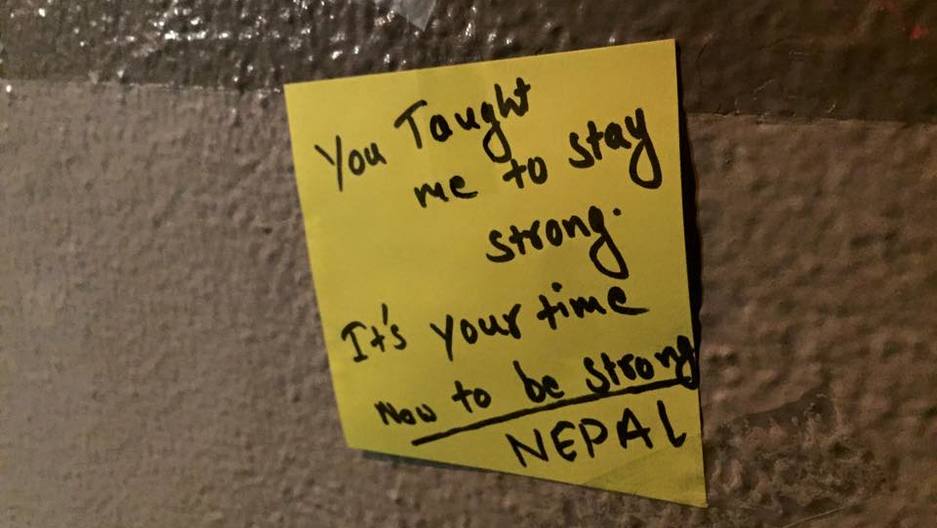 You Taught
me to stay
strong.
It's your time
Now to be strong
NEPAL